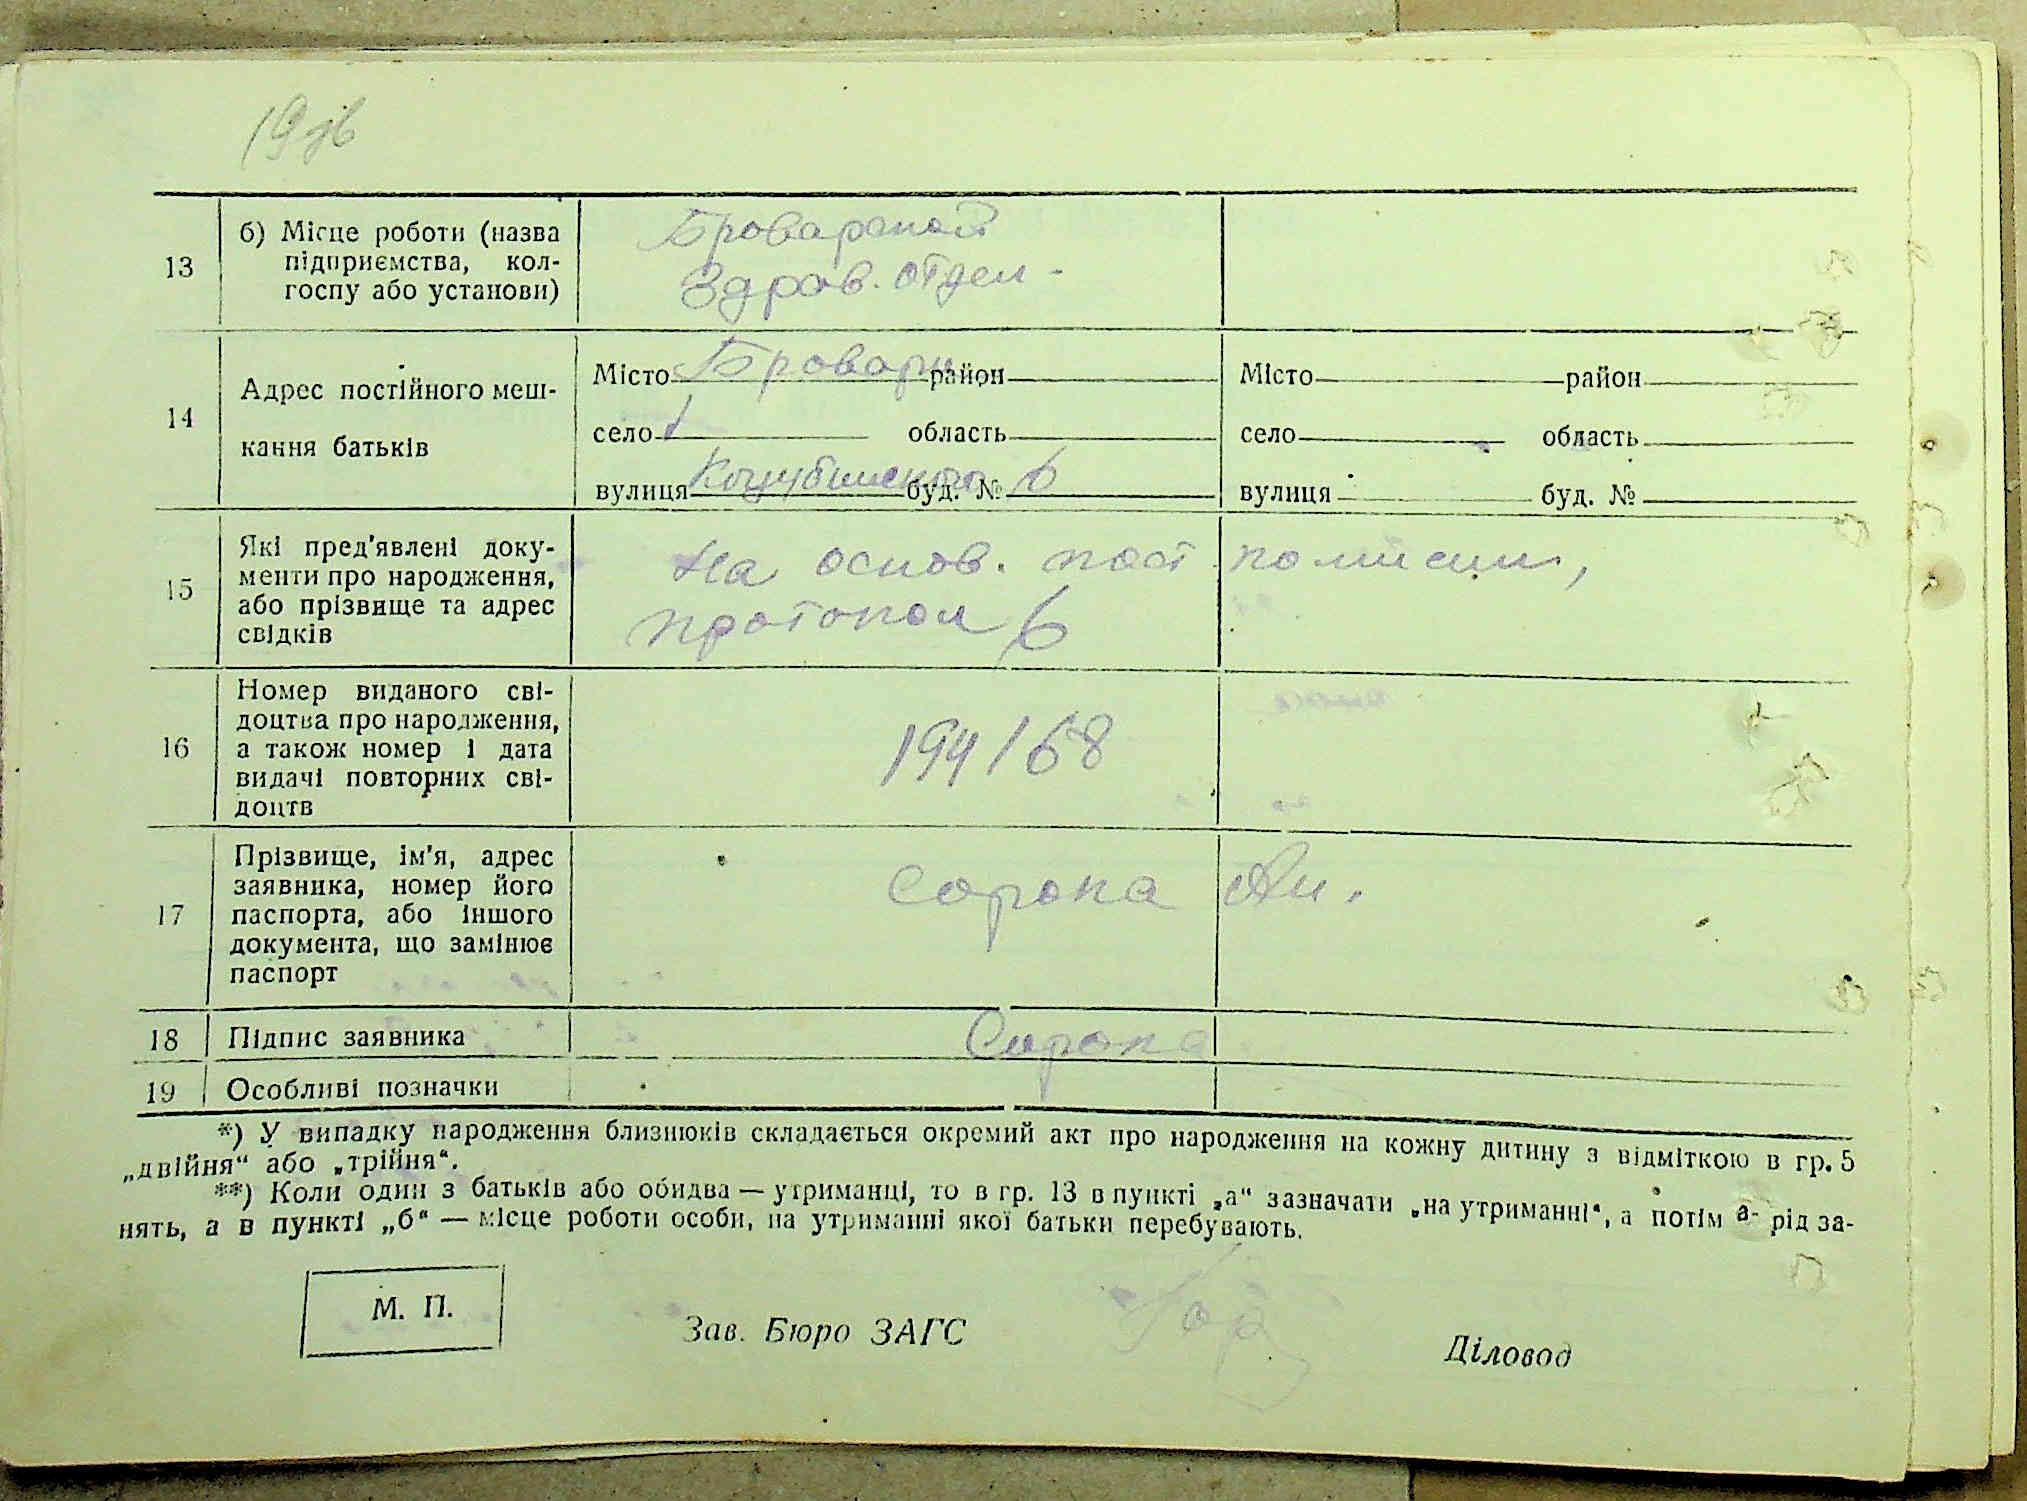 19 зв
13
б) Місце роботи (назва
підприємства, кол-
госпу або установи)
Броварской
Здрав. отдел -
14
Адрес постійного меш-
кання батьків
Місто Бровари район Місто район
село область село область
вулиця Коцубинского буд. № 6 вулиця буд. №
15
Які пред'явлені доку-
менти про народження,
або прізвище та адрес
свідків
На основ. пост комисии,
протокол 6
16
Номер виданого сві-
доцтва про народження,
а також номер і дата
видачі повторних сві-
доцтв
194/68
17
Прізвище, ім'я, адрес
заявника, номер його
паспорта, або іншого
документа, що замінює
паспорт
Сорока Ан.
18 Підпис заявника Сорока
19 Особливі позначки
*) У випадку народження близнюків складається окремий акт про народження на кожну дитину з відміткою в гр. 5
„двійня“ або „трійня“.
**) Коли один з батьків або обидва — утриманці, то в гр. 13 в пункті „а“ зазначати „на утриманні“, а потім а- рід за-
нять, а в пункті „б“ — місце роботи особи, на утриманні якої батьки перебувають.
М. П.
Зав. Бюро ЗАГС
Діловод